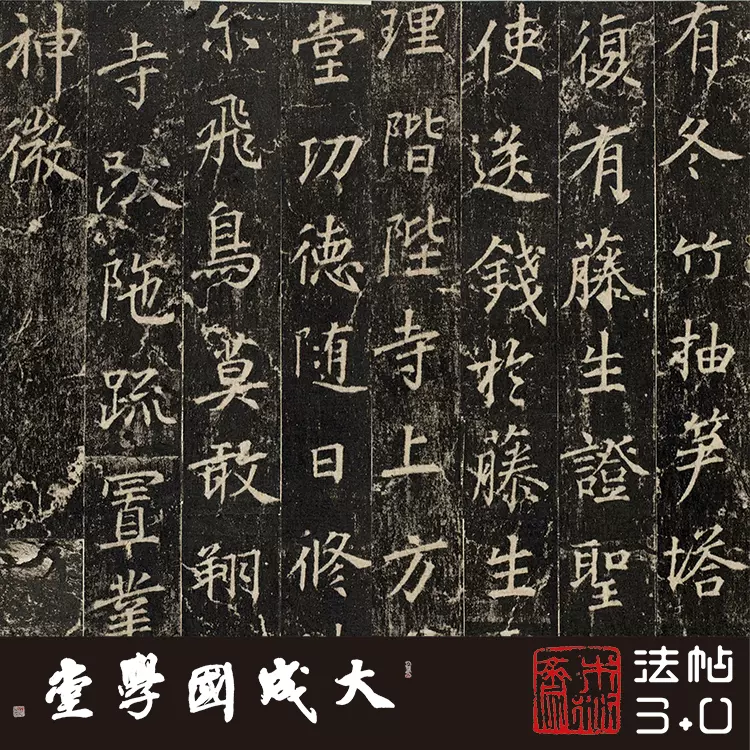 有冬竹抽笋塔
復有藤生證聖
使送錢於藤生
理階陛寺上方
堂功德随日修
尔飛鳥莫敢翔
寺跋陁疏置業
神微
大成國學堂
法帖
3.0